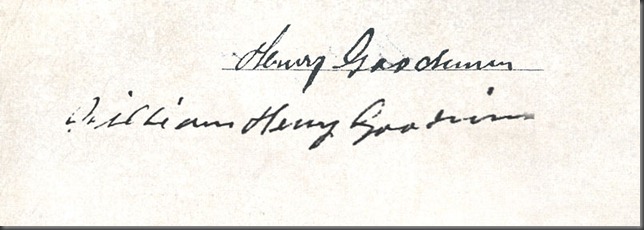 Henry Goodwin
William Henry Goodwin